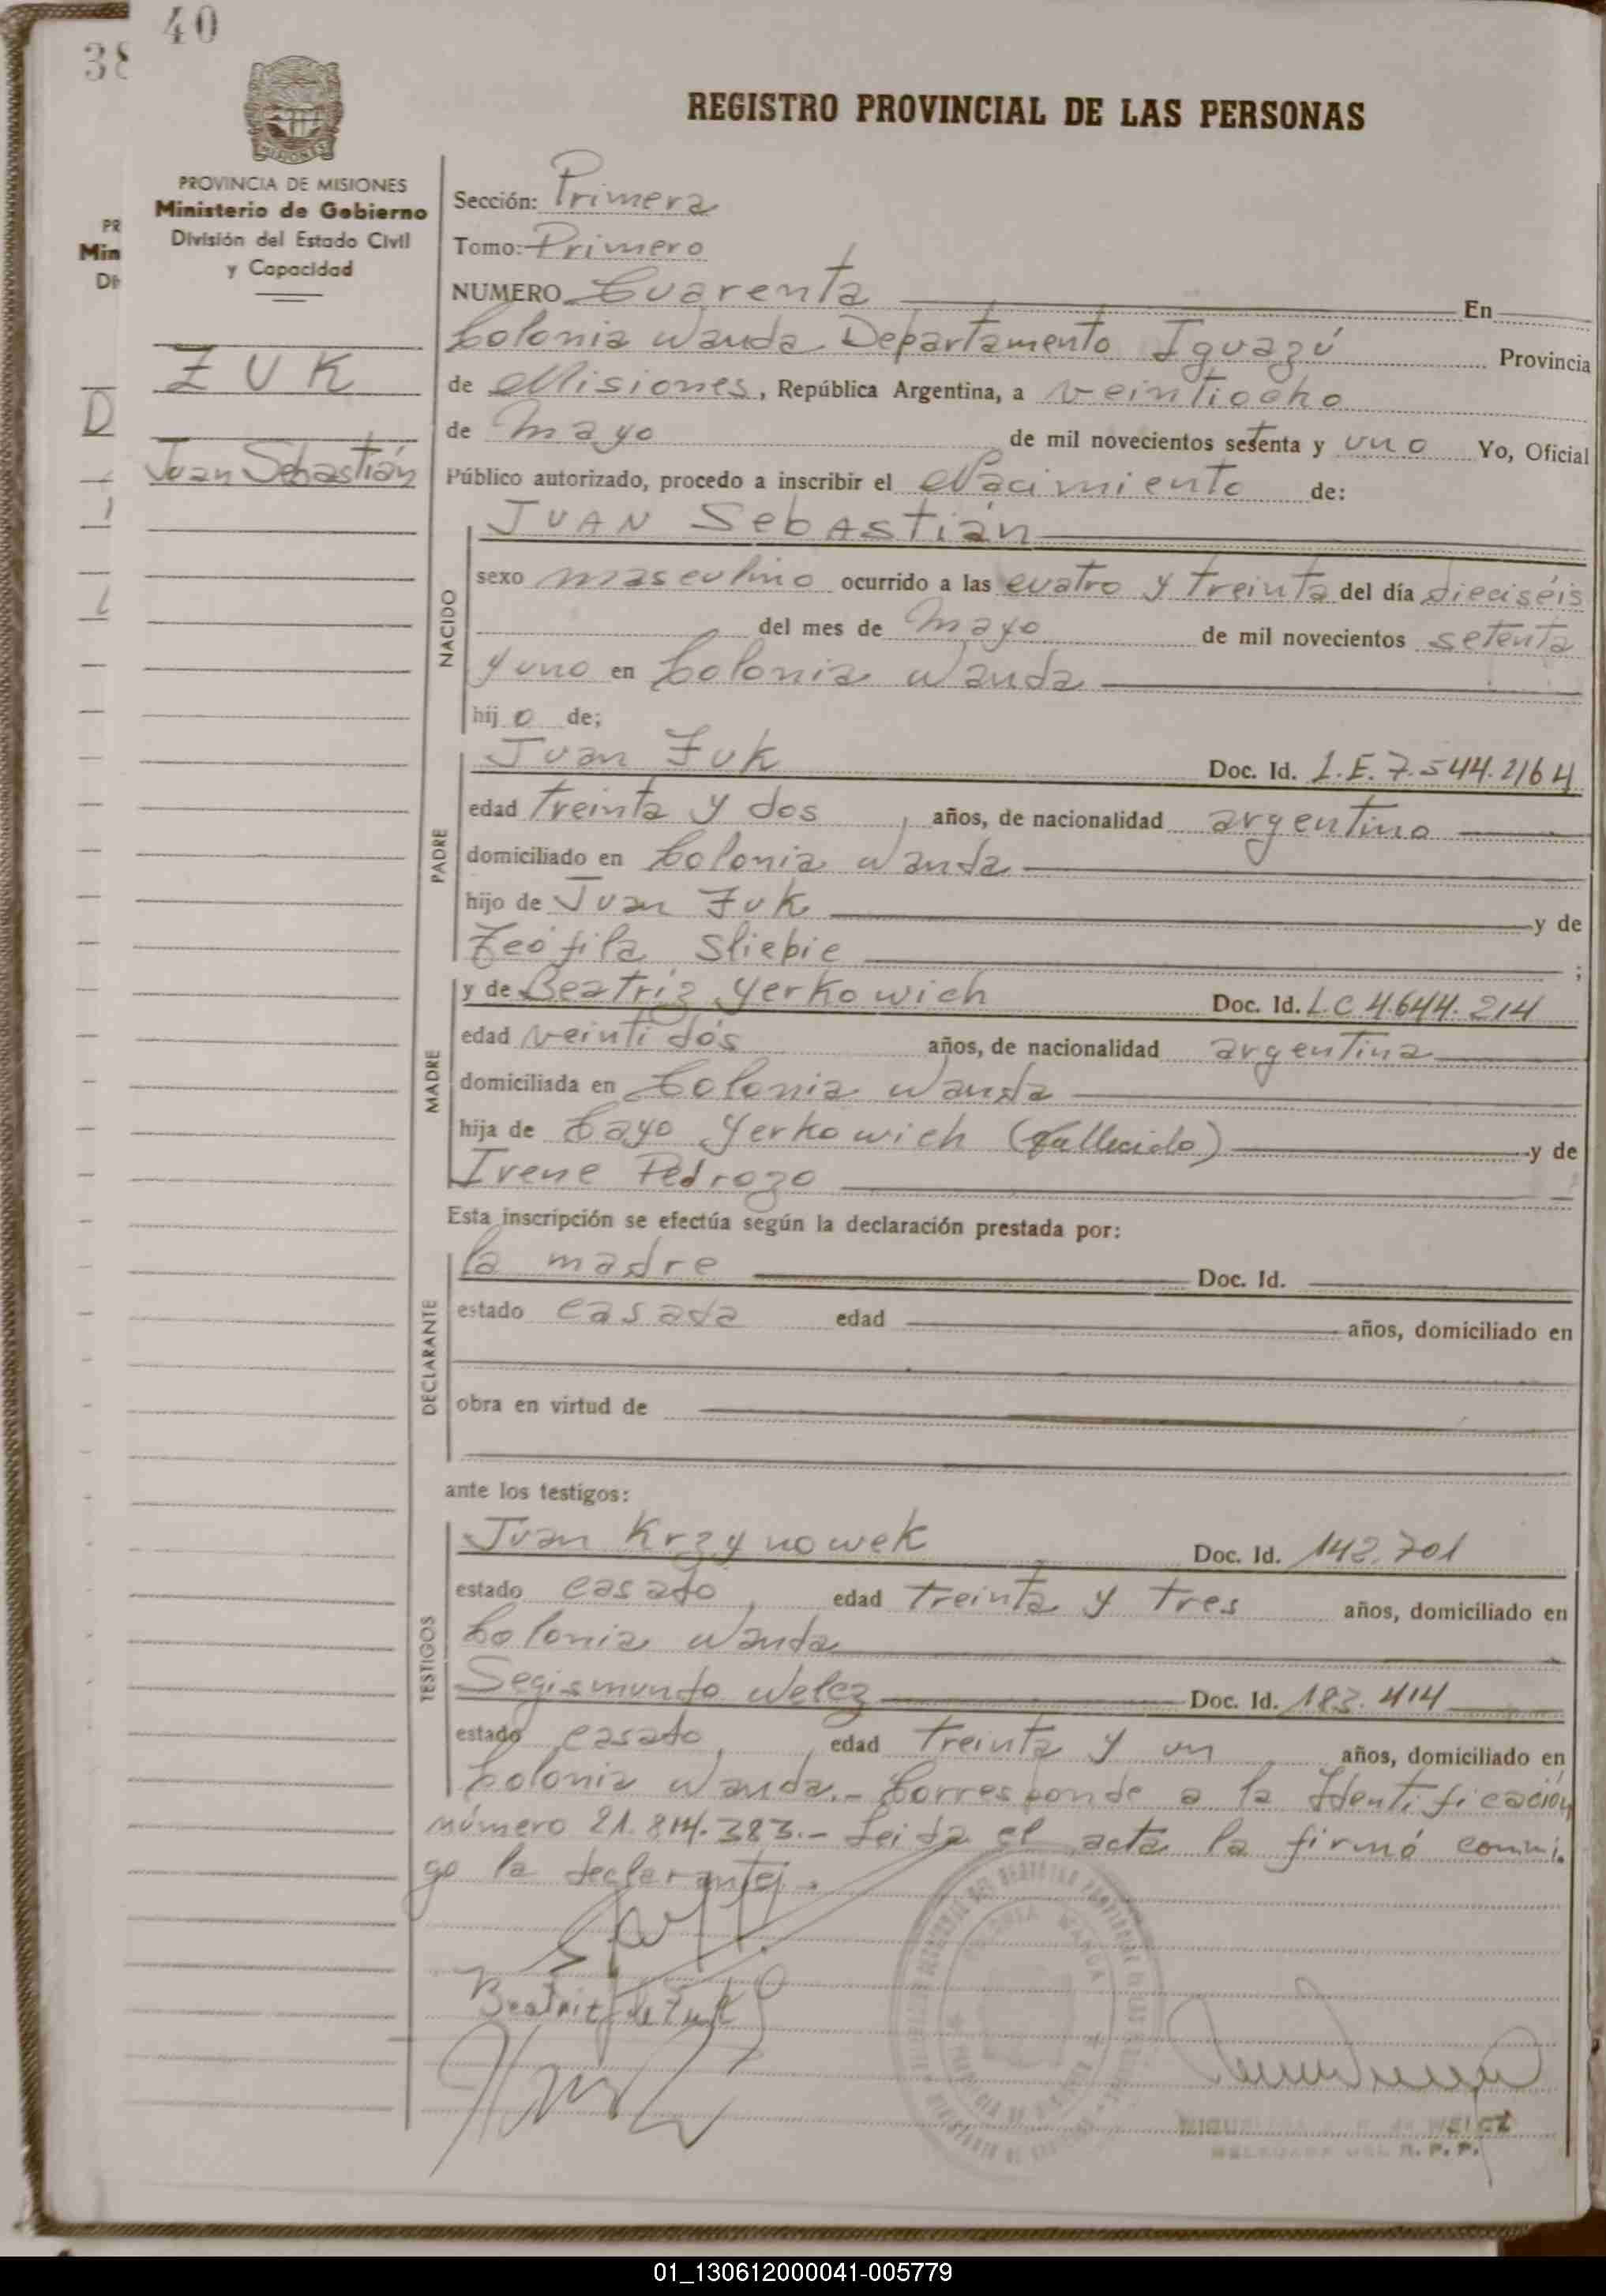 40
38
REGISTRO PROVINCIAL DE LAS PERSONAS
PROVINCIA DE MISIONES
Ministerio de Gobierno
División del Estado Civil
y Capacidad
PR
Min
Di
ZUK
Juan Sebastián
D
Sección: Primera
Tomo: Primero
NUMERO Cuarenta En
Colonia Wanda Departamento Iguazú Provincia
de Misiones, República Argentina, a veintiocho
de mayo de mil novecientos setenta y uno Yo, Oficial
Público autorizado, procedo a inscribir el Nacimiento de:
NACIDO
JUAN SebAstián
sexo masculino ocurrido a las cuatro y treinta del día dieciséis
del mes de mayo de mil novecientos setenta
y uno en Colonia Wanda
hijo de;
PADRE
Juan Zuk Doc. Id. L.E. 7.544.2164
edad treinta y dos, años, de nacionalidad argentino
domiciliado en Colonia Wanda
hijo de Juan Zuk y de
Teófila Sliepie ;
MADRE
y de Beatriz Yerkowich Doc. Id. L.C 4.644.214
edad veintidós años, de nacionalidad argentina
domiciliada en Colonia Wanda
hija de Cayo Yerkowich (fallecido) y de
Irene Pedrozo
Esta inscripción se efectúa según la declaración prestada por:
DECLARANTE
la madre Doc. Id.
estado casada edad años, domiciliado en
obra en virtud de
ante los testigos:
TESTIGOS
Juan Krzynowek Doc. Id. 142.701
estado casado, edad treinta y tres años, domiciliado en
Colonia Wanda
Segismundo Welcz Doc. Id. 183.414
estado casado, edad treinta y un años, domiciliado en
Colonia Wanda.- Corresponde a la Identificación
número 21.814.383.- Leida el acta la firmó conmi.
go la declarante.
Beatriz de Zuk
COLONIA WANDA
WELCZ
R. P. P.
01_130612000041-005779